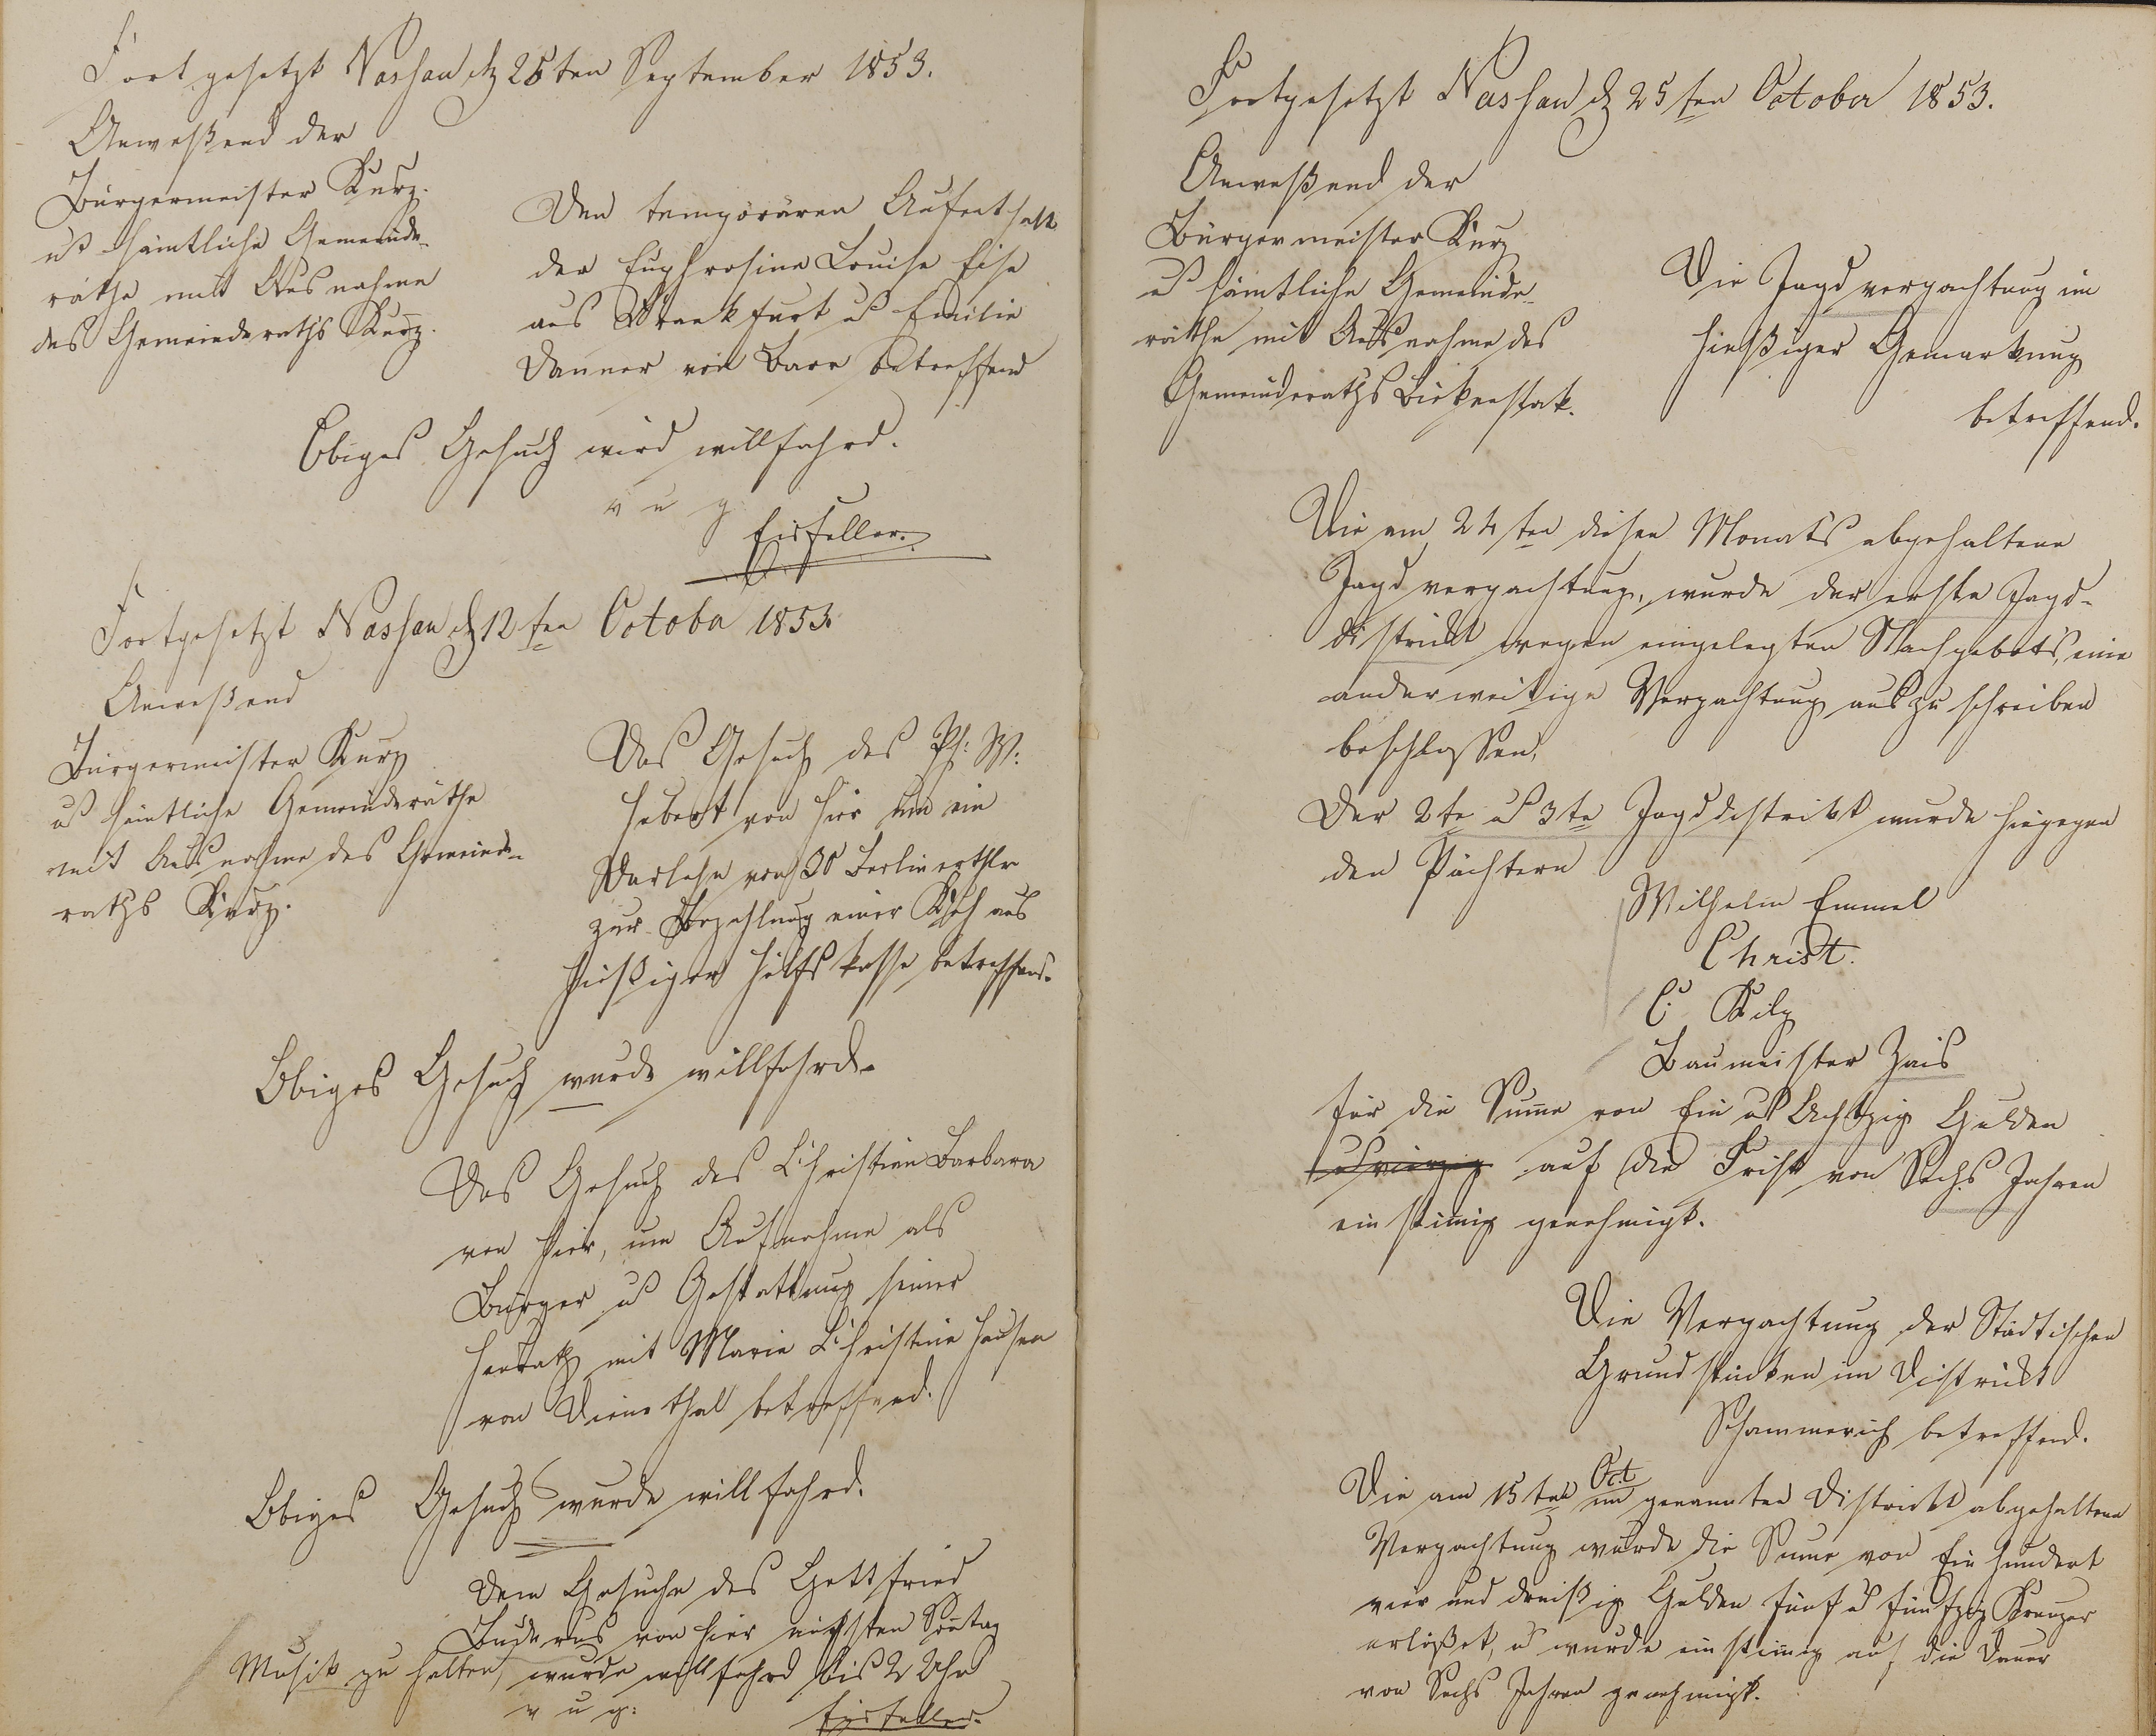 Fortgesetzt Nassau d 26ten September 1853.
Anweßend der
Bürgermeister Kurz.
u sämtliche Gemeinde-
räthe mit Ausnahme
des Gemeinderaths Kurz.
Den temporären Aufenthalt
der Euphrosine Louise Eise
aus Frankfurt u Emilie
Danner von Barr betreffend
Obiges Gesuch wird willfahrd.
v u g
Eisfeller.
Fortgesetzt Nassau d 12ten Octobr 1853.
Anweßend
Bürgermeister Kurz
u sämtliche Gemeinderäthe
mit Ausnahme des Gemeinde-
raths Kurz.
Das Gesuch des Ph: W:
Hebert von hier um ein
Darlehn von 30 Berlinerthlr
zur Bezahlung einer Kuh aus
hießiger Hülfskasse betreffend.
Obiges Gesuch wurde willfahrd.
Das Gesuch des Christian Barbara
von hier, um Aufnahme als
Bürger u Gestattung seiner
Heirath mit Marie Christine Hausen
von Dienethal betreffend.
Obiges Gesuch wurde willfahrd.
Dem Gesuche des Gottfried
Buderus von hier nächsten Sontag
Musik zu halten, wurde willfahrd bis 2 Uhr
v u g:
Eisfeller.
Fortgesetzt Nassau d 25ten October 1853.
Anweßend der
Bürgermeister Kurz
u sämtliche Gemeinde-
räthe mit Ausnahme des
Gemeinderaths Birkenstok.
Die Jagdverpachtung in
hießiger Gemarkung
betreffend.
Die am 24ten diesen Monats abgehaltene
Jagdverpachtung, wurde der erste Jagd-
distrikt wegen eingelegten Nachgebots, eine
anderweitige Verpachtung auszuschreiben
beschlossen.
Der 2te u 3te Jagddistrikt wurde hingegen
den Pächtern
Wilhelm Emmel
Christ.
C: Kilp
Baumeister Zais
für die Sume von Ein u Achtzig Gulden
auf die Frist von Sechs Jahren
einstimig genehmigt.
Die Verpachtung der Städtischen
Grundstücken im District
Schammerich betreffend.
Die am 15ten Oct im genannten District abgehaltene
Verpachtung wurde die Sume von Ein hundert
vier und dreißig Gulden fünf u fünfzig Kreuzer
erlößet, u wurde einstimig auf die Dauer
von Sechs Jahren genehmigt.